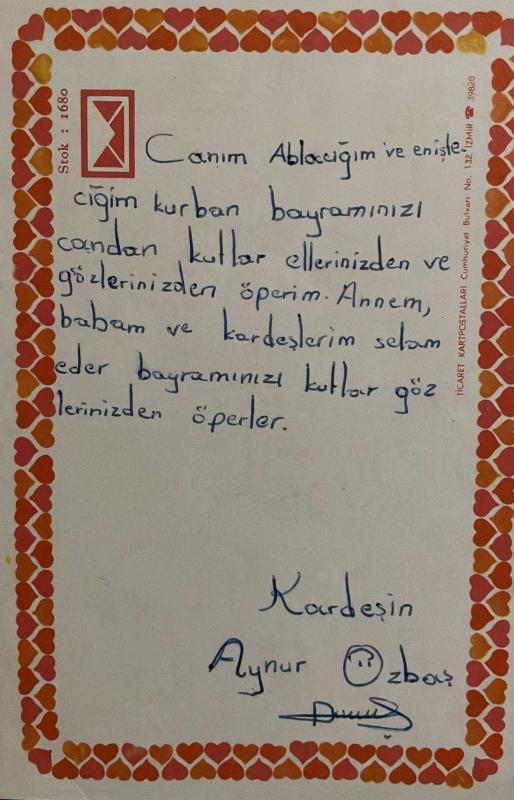 Stok : 1680
TİCARET KARTPOSTALLARI Cumhuriyet Bulvarı No. 132 İZMİR ☎ 39820
Canım Ablacığım ve enişte-
ciğim kurban bayramınızı
candan kutlar ellerinizden ve
gözlerinizden öperim. Annem,
babam ve kardeşlerim selam
eder bayramınızı kutlar göz
lerinizden öperler.
Kardeşin
Aynur Özbaş